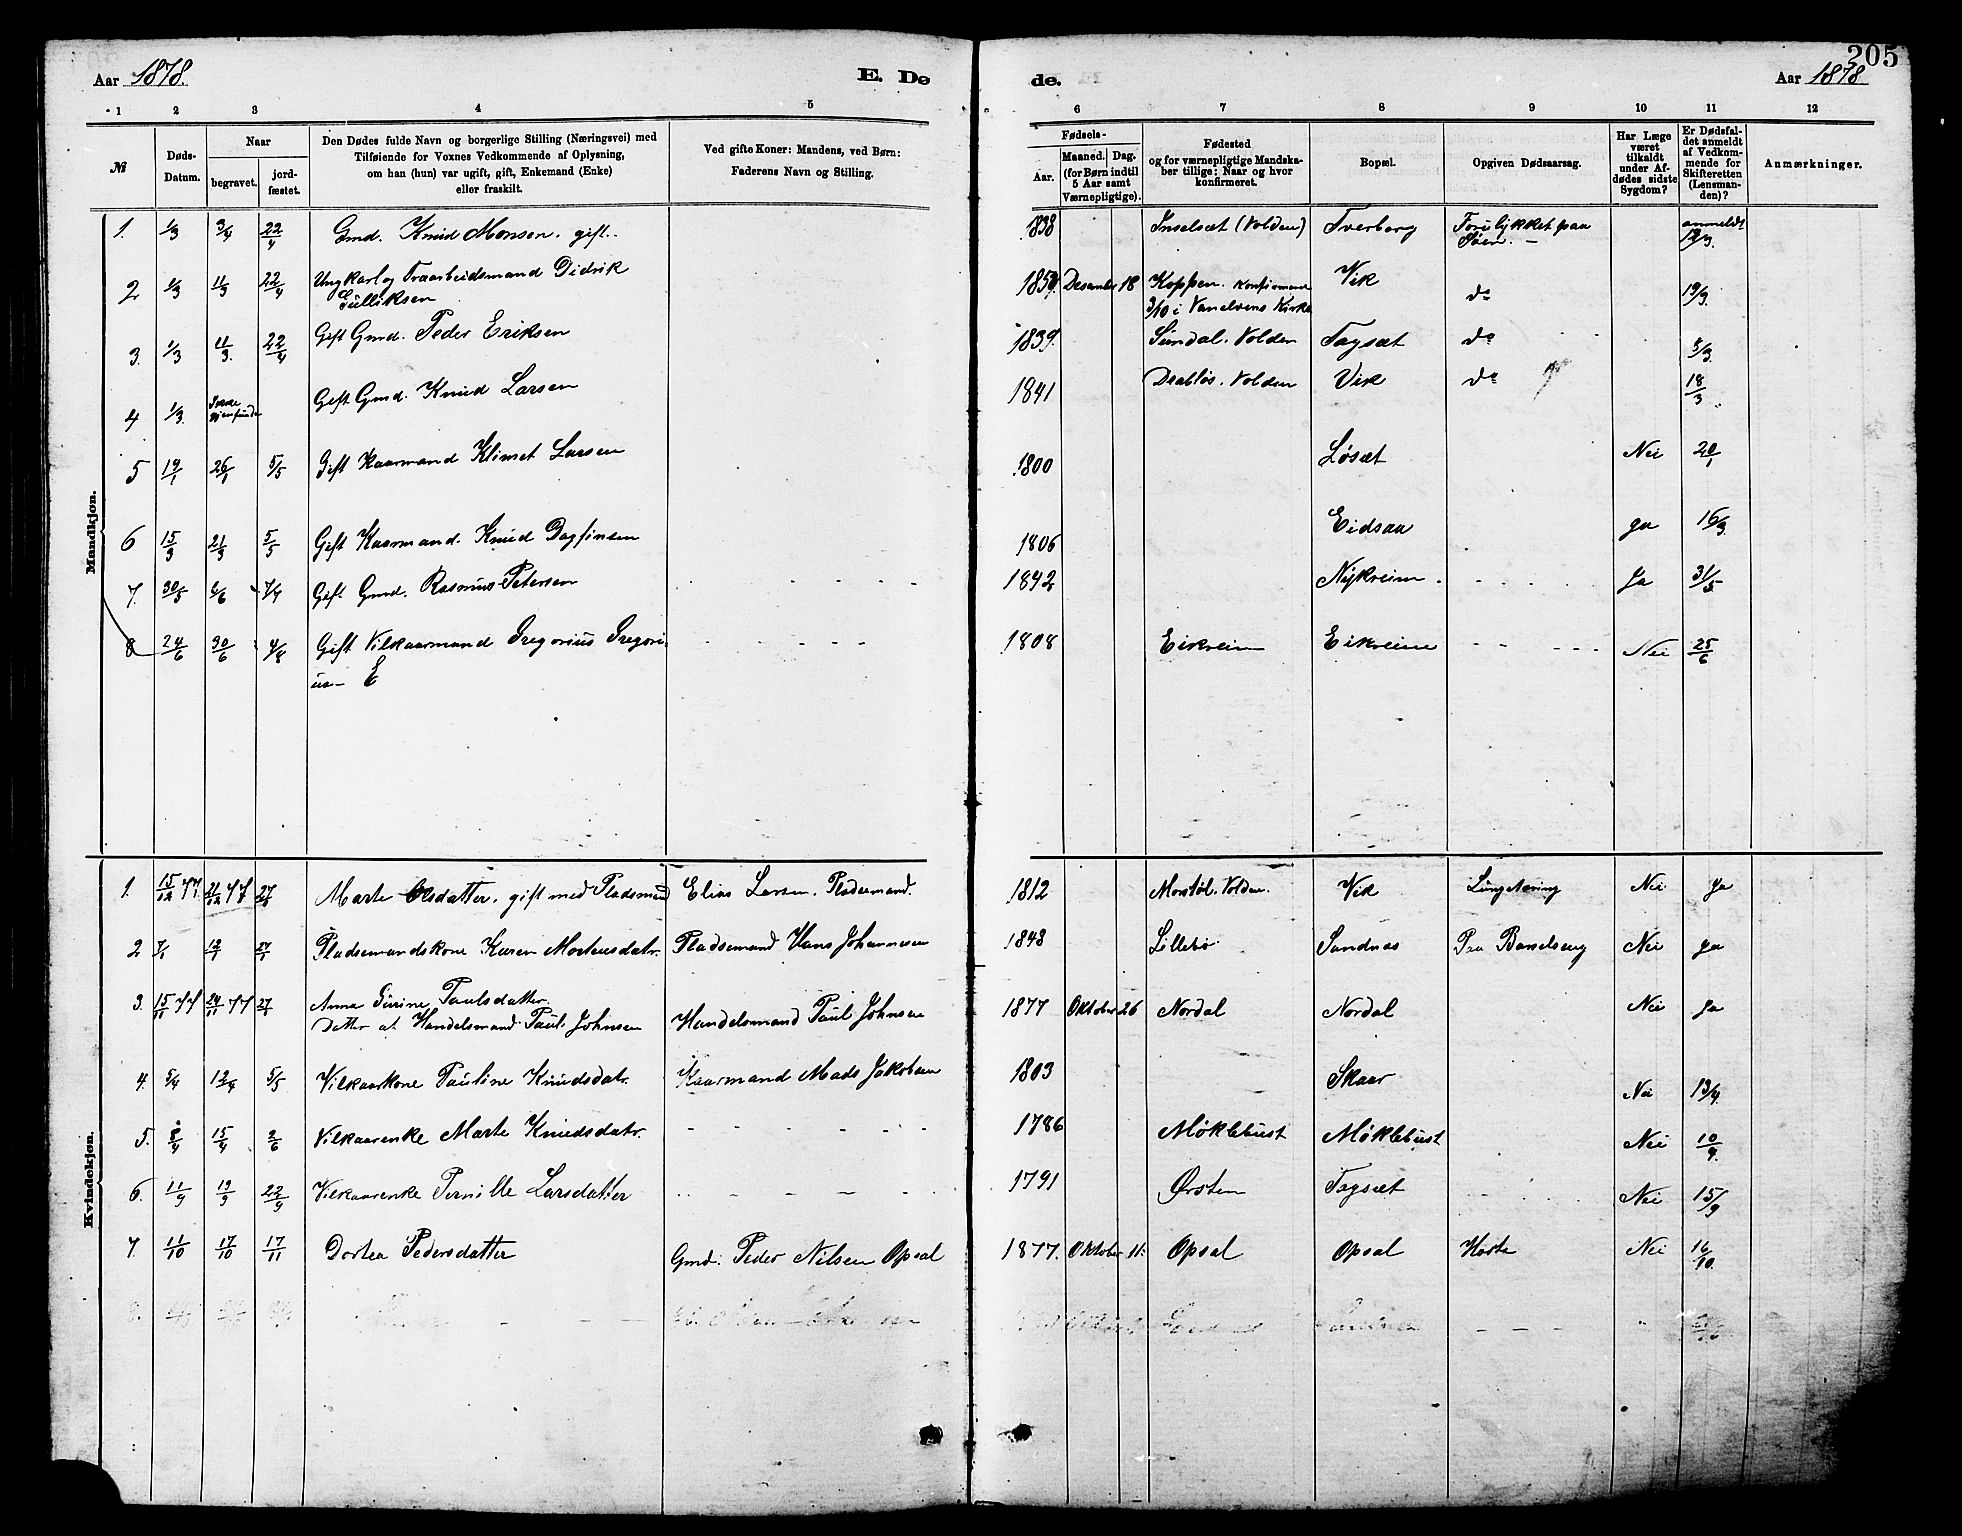 205
Aar 1878. E. Dø de. Aar 1878
1 2 3 4 5 6 7 8 9 10 11 12
№
Døds-Datum.
Naar
begravet.
jord-fæstet.
Den Dødes fulde Navn og borgerlige Stilling (Næringsvei) med
Tilføiende for Voxnes Vedkommende af Oplysning,
om han (hun) var ugift, gift, Enkemand (Enke)
eller fraskilt.
Ved gifte Koner: Mandens, ved Børn:
Faderens Navn og Stilling.
Fødsels-
Aar.
Maaned. Dag.
(for Børn indtil
5 Aar samt
Værnepligtige).
Fødested
og for værnepligtige Mandska-
ber tillige: Naar og hvor
konfirmeret.
Bopæl.
Opgiven Dødsaarsag.
Har Læge
været
tilkaldt
under Af-
dødes sidste
Sygdom?
Er Dødsfal-
det anmeldt
af Vedkom-
mende for
Skifteretten
(Lensman-
den)?
Anmærkninger.
Mandkjøn.
1. 1/3 3/4 22/4 Gmd. Knud Monsen. gift. 1838 Inselsæt (Volden) Tverberg Forulykket paa Søen. anmeldt 12/3.
2 1/3 11/3 22/4 Ungkarl og Træarbeidsmand Didrik Gulliksen Desember 18 Koppen. Konfirmeret 3/10 i Vanelvens Kirke Vik do 19/3.
3. 1/3 11/3. 22/4 Gift Gmd. Peder Eriksen 1839. Sundal. Volden Tagsæt do 5/3
4 1/3. Gift Gmd. Knud Larsen 1841 Drabløs. Volden Vik do 18/3
5 19/1 26/1 5/5 Gift Kaarmand Klimet Larsen 1800 Løsæt Nei 20/1
6 15/3 21/3 5/5 Gift Kaarmand. Knud Dagfinsen 1806 Eidsaa ja 16/3.
7. 30/5 6/6 7/7 Gift Gmd. Rasmus Petersen 1842 Nykreim. Ja 31/5
8 24/6 30/6 4/8 Gift Vilkaarmand Gregorius Gregori-us- E 1808 Eikreim Eikreim Nei 25/6
Kvindekjøn.
1. 15/12 77. 21/12 77 27/1 Marte Olsdatter. gift med Pladsmand Elias Larsen. Pladsemand. 1812 Morstøl. Volden. Vik Lungetæring Nei Ja
2 7/1 12/1 27/1 Pladsemandskone Karen Mortensdatr. Pladsemand Hans Johannesen 1843 Lillebø Sandnæs Paa Barselseng Nei ja
3. 15/11 77 24/11 77 27/1 Anna Gurine Paulsdatter. Datter af Handelsmand Paul Johnsen Handelsmand Paul Johnsen 1877 Oktober 26 Nordal Nordal Nei ja
4. 5/4 12/4 5/5 Vilkaarkone Pauline Knudsdatr. Kaarmand Mads Jakobsen 1803 Skaar Nei 13/4.
5. 8/4 15/4 2/6 Vilkaarenke Marte Knudsdatr. 1786 Møklebust Møklebust Nei 10/4.
6. 11/9 19/9 22/9 Vilkaarenke Pernille Larsdatter 1791 Ørsten Tagsæt Nei 15/9
7. 11/10 17/10 17/11 Dortea Pedersdatter Gmd. Peder Nilsen Opsal 1877. Oktober 11. Opsal Opsal Hoste Nei 16/10.